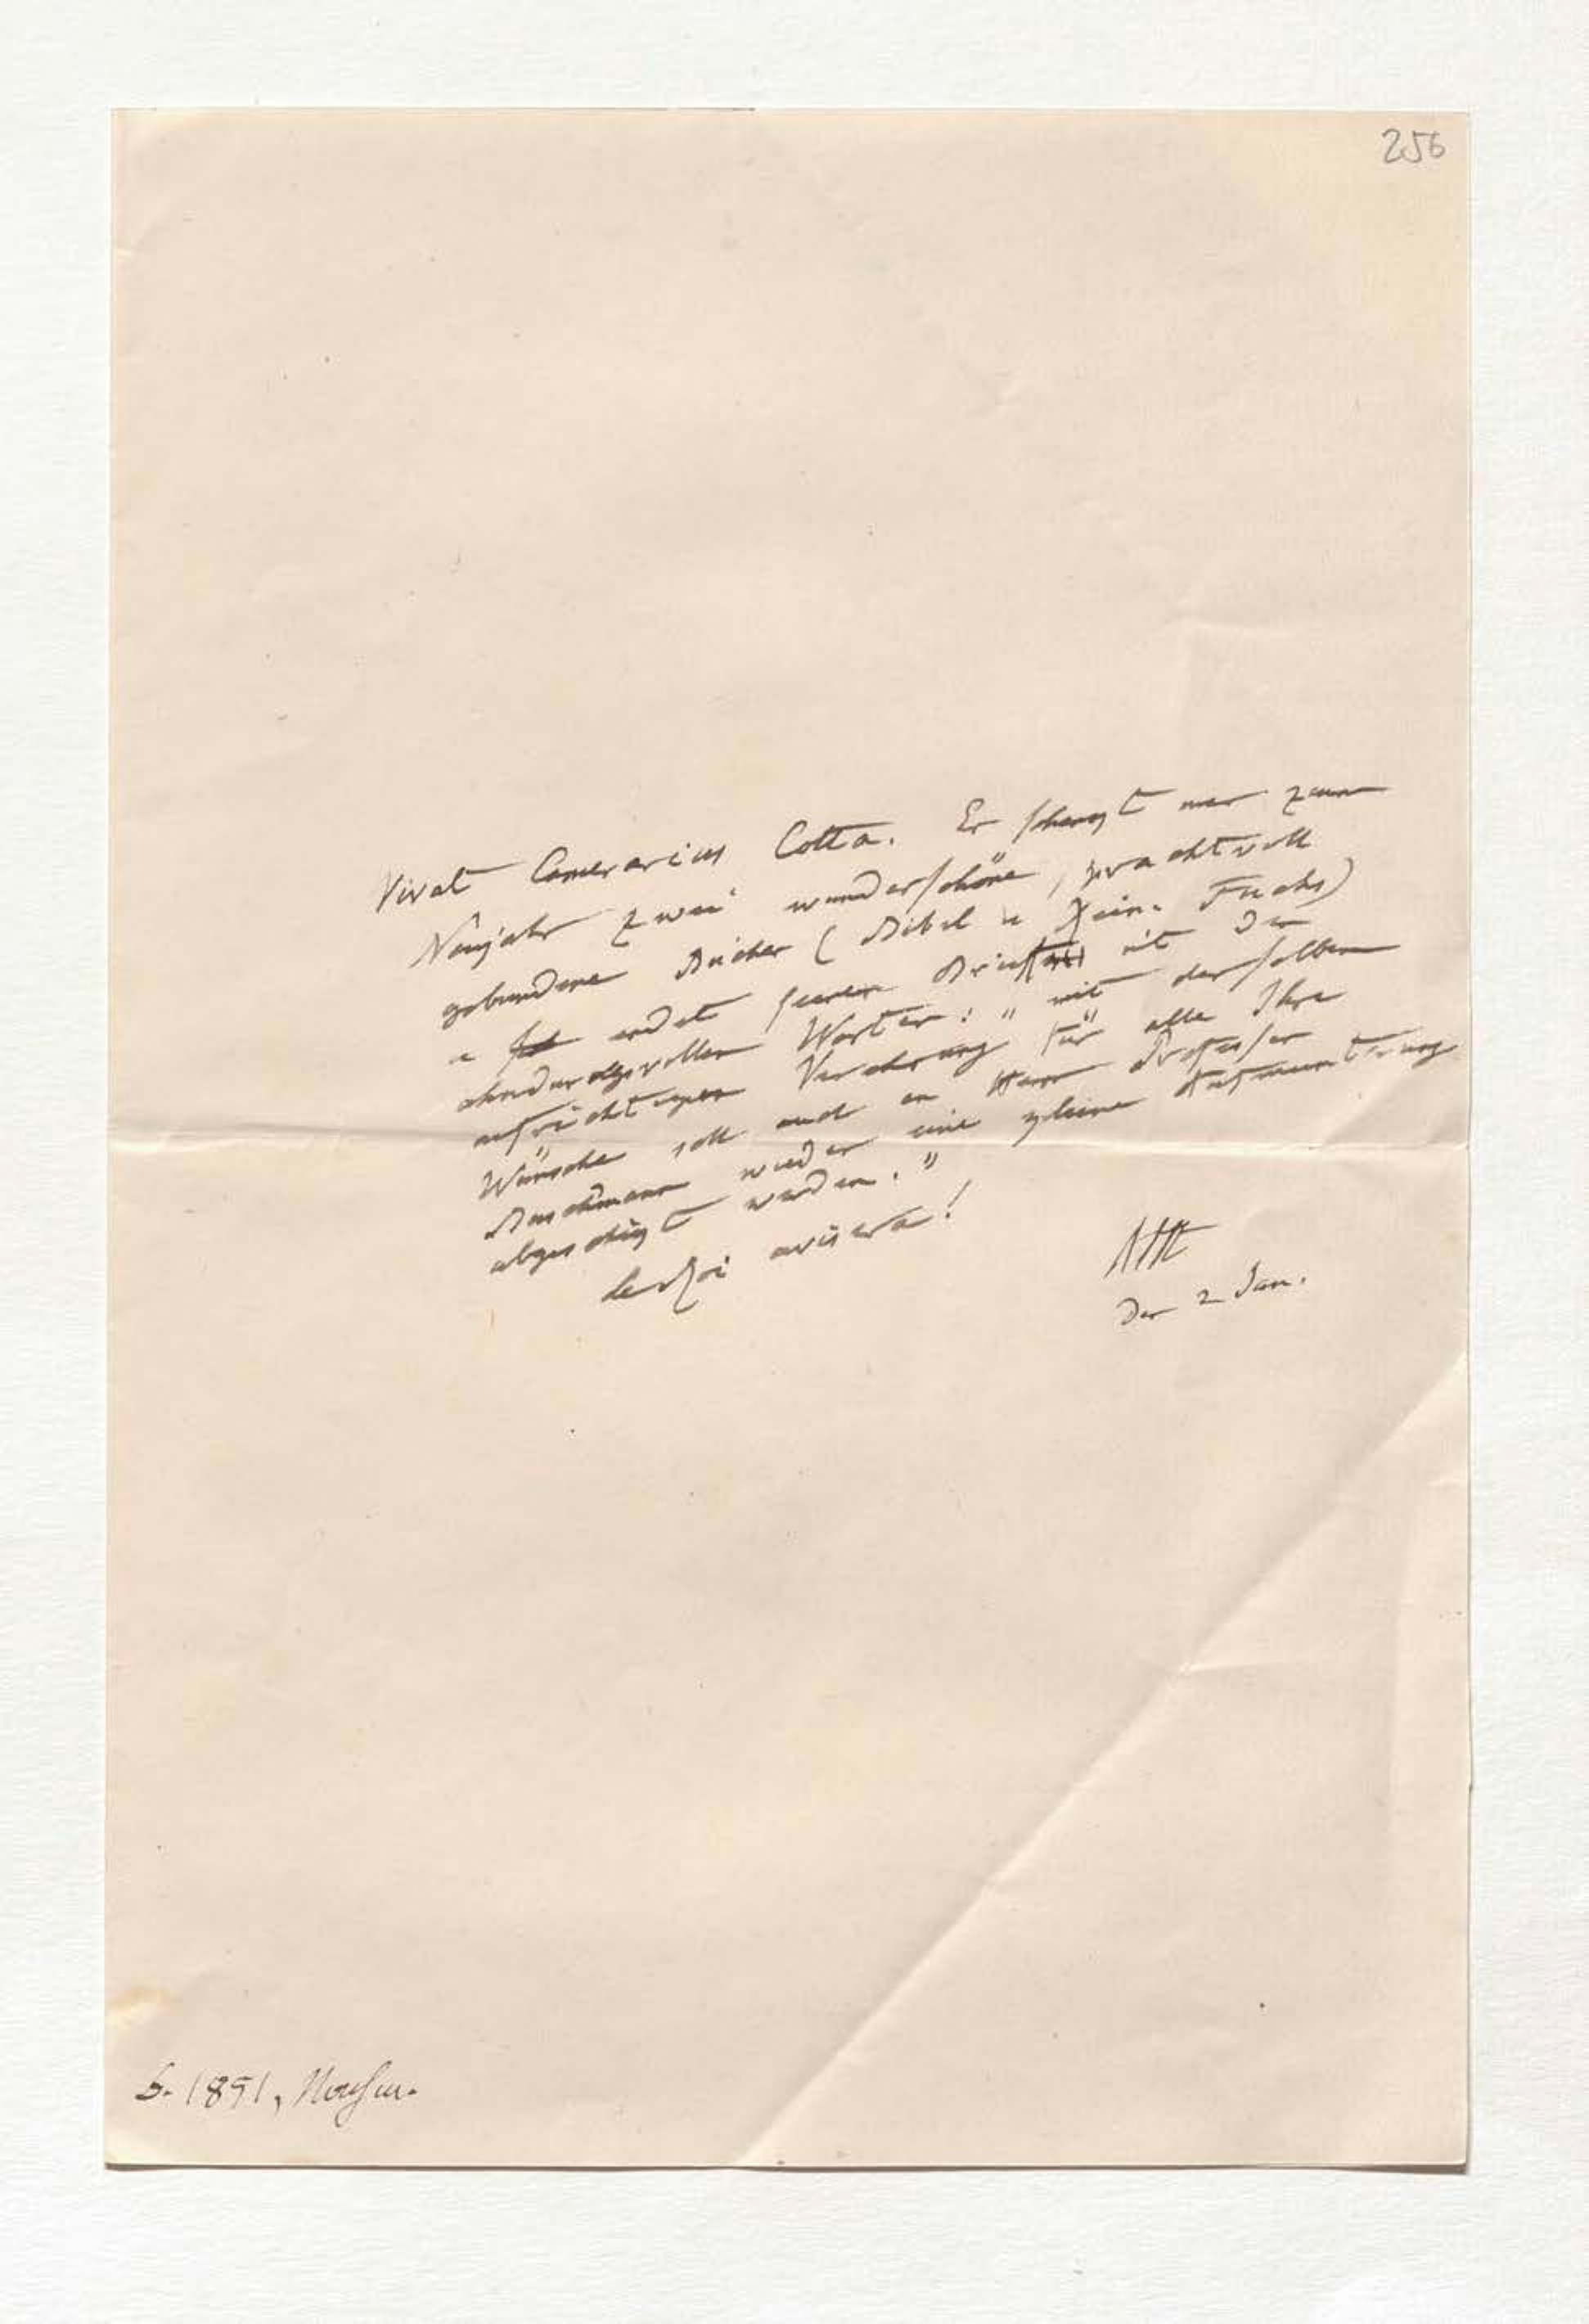 256
Vivat Camerarius Cotta. Er schenkt mir zum
Neujahr zwei wunderschöne, prachtvoll
gebundene Bücher (Bibel u Rein. Fuchs)
u endet seinen Brief mit den
ahndungsvollen Worten: „mit derselben
aufrichtigen Verehrung für alle Ihre
Wünsche soll auch an Herr Professor
Buschmann wieder eine kleine Aufmunterung
abgeschickt werden."
AHt
Den 2 Jan.
b. 1851,